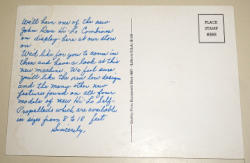 We'll have one of the new
John Deere Hi Lo Combines
on display here at our store
on
We'd like for you to come in
then and have a look at this
new machine. We feel sure
you'll like the new low design
and the many other new
features found on all four
models of new Hi Lo Self-
Propelleds which are available
in sizes from 8 to 18 feet
Sincerely,
PLACE
STAMP
HERE